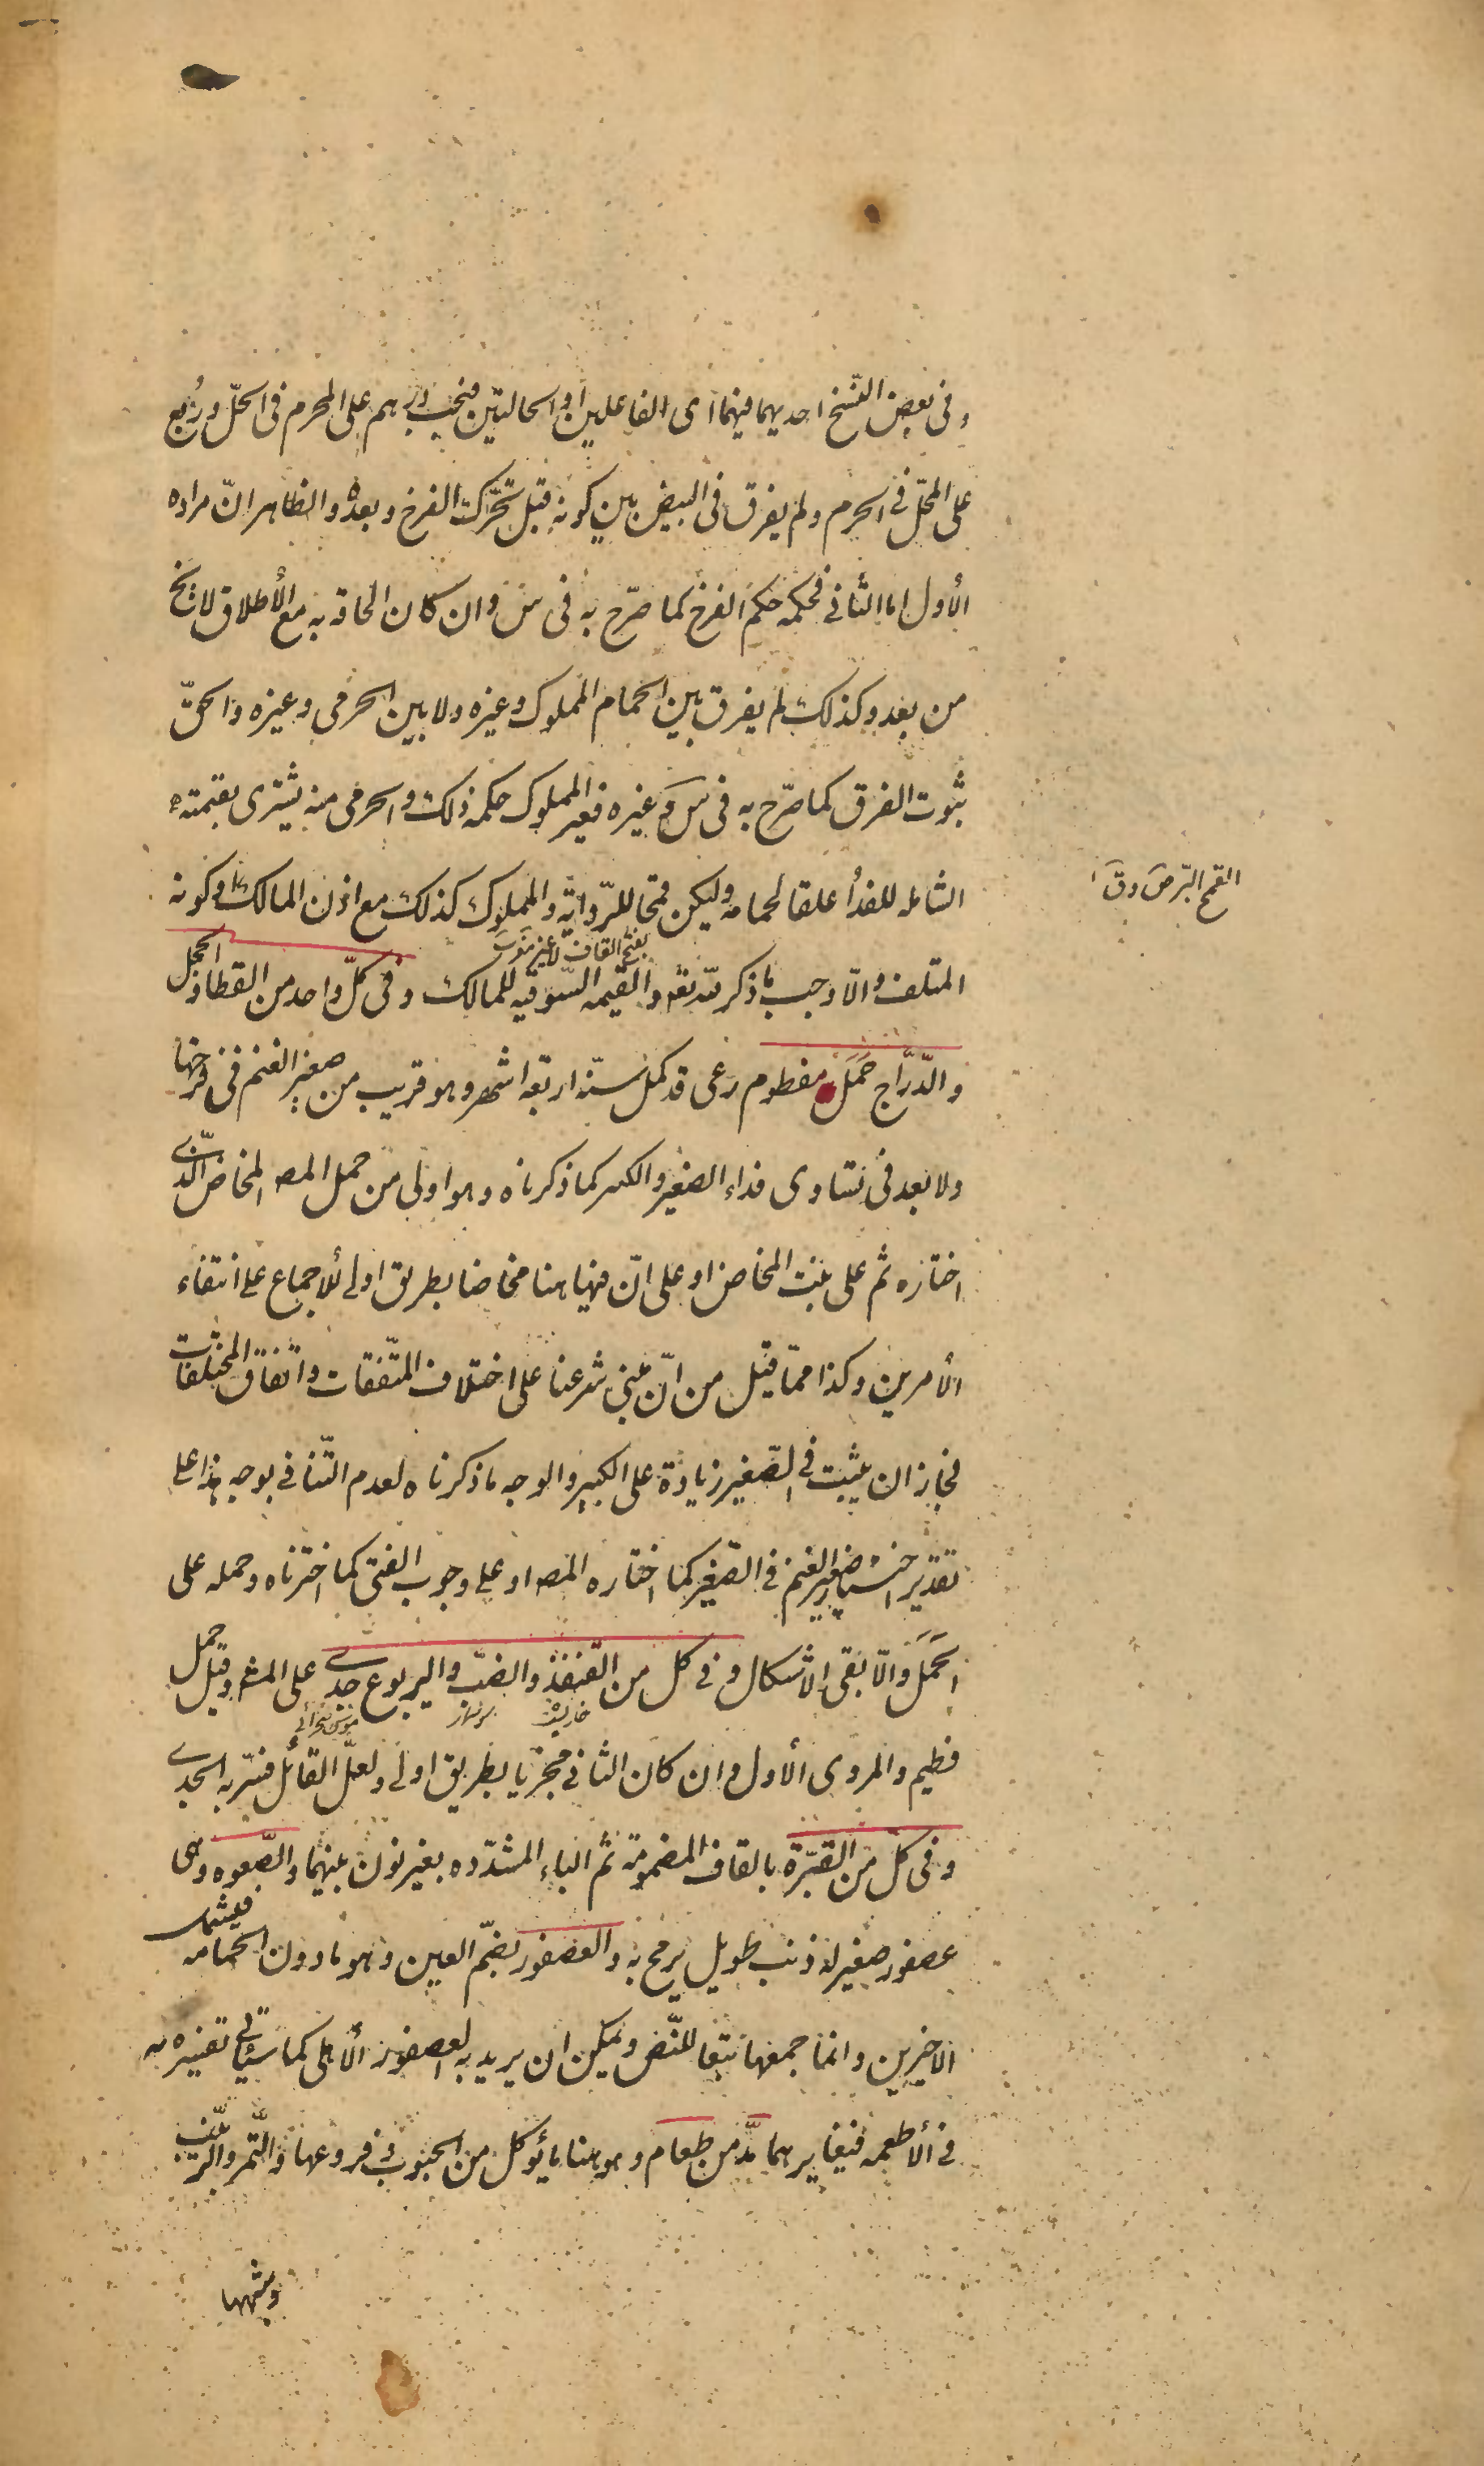 وفى بعض النسخ احديهما فيهما اى الفاعلين او الحالتين فيجب درهم على المحرم فى الحلّ ورُبع
على المحلّ فى الحرم ولم يفرق فى البيض بين كونه قبل تحرّك الفرخ وبعده والظاهر انّ مراده
الأول اما الثانى فحكمه حكم الفرخ كما صرّح به فى س وان كان الحاقه به مع الأطلاق لا يخ
من بعد وكذلك لم يفرق بين الحمام المملوك وغيره ولا بين الحرمى وغيره والحقّ
ثبوت الفرق كما صرّح به فى س وغيره فغير المملوك حكمه ذلك والحرمى منه يشترى بقيمته
الشامله للفدأ علفا لحمامه وليكن قمحا للرّواية والمملوك كذلك مع اذن المالك او كونه
القمح البرّ ص و ق
بفتح القاف لا غير
المتلف والّا وجب ما ذكر للّه تع والقيمه السّوقيه للمالك وفى كلّ واحد من القطا والحجل
والدّرّاج حَمَل مفطوم رعى قد كمل سنّه اربعة اشهر وهو قريب من صغير الغنم فى فرخها
ولا بعد فى تساوى فداء الصغير والكبير كما ذكرناه وهو اولى من حمل المص المخاض الّذى
اختاره ثم على بنت المخاض او على انّ فيها هنا مخاضا بطريق اولى للاجماع على انتفاء
الأمرين وكذا ممّا قيل من انّ مبنى شرعنا على اختلاف المتّفقات واتّفاق المختلفات
فجاز ان يثبت فى الصّغير زيادة على الكبير والوجه ما ذكرناه لعدم التّنافى بوجه هذا على
تقدير اختيار صغير الغنم فى الصّغير كما اختاره المص او على وجوب الفتى كما اخترناه وحمله على
الحَمَل والّا بقى الاشكال وفى كل من القنفذ والضبّ واليربوع جدى على المشهور وقيل حمل
خارپشت سوسمار موش صحرائى
فطيم والمروى الأول وان كان الثانى مجزيا بطريق اولى ولعلّ القائل فسّر به الجدى
وفى كلّ من القبّرة بالقاف المضمومة ثم الباء المشدّده بغير نون بينهما والصّعوه وهى
عصفور صغير له ذنب طويل يرمح به والعصفور بضمّ العين وهو ما دون الحمامه فيشمل
الاخيرين وانما جمعها تبعا للنّص ويمكن ان يريد به العصفور الأهلى كما سيأتى تفسيره به
فى الأطعمه فيغايرهما مدّ من طعام وهو هنا ما يؤكل من الحبوب وفروعها والتّمر والزّبيب
وشبهها